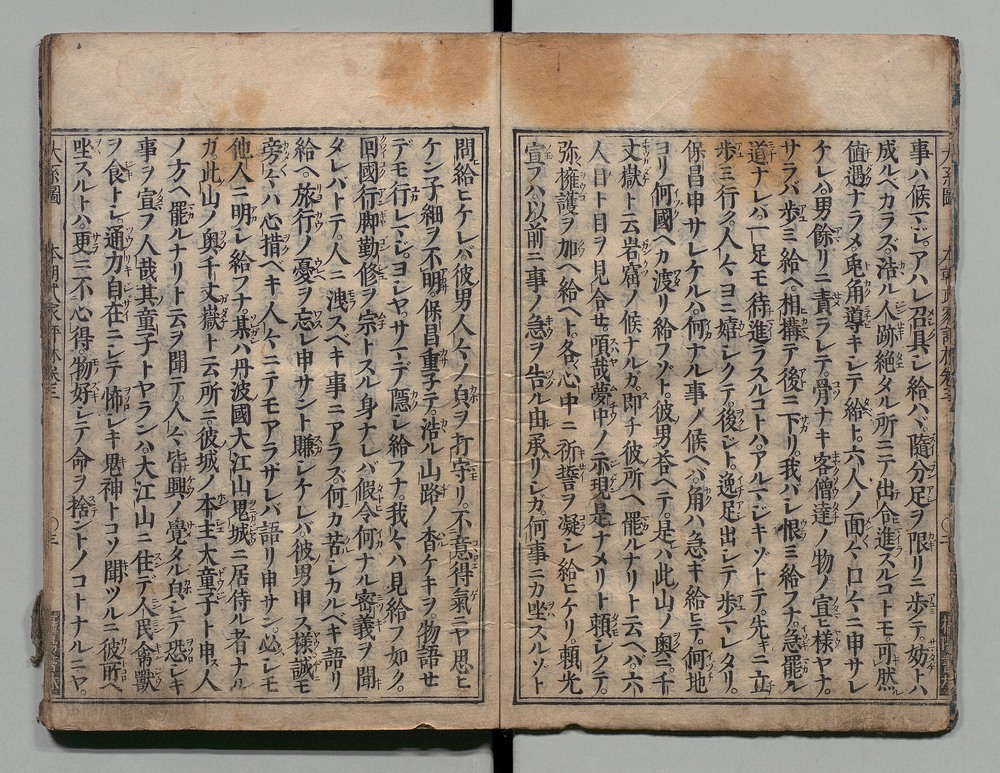 事ハ候マジ。アハレ召具シ給ハヽ。隨分足ヲ限リニ歩テ。妨トハ
成ルベカラズ。浩ル人跡絶タル所ニテ出合進スルコトモ。可然
値遇ナラメ。兎角導キシテ給ト。六人ノ面々口々ニ申サレ
ケレハ。男餘リニ責ラレテ。骨ナキ客僧達ノ物ノ宣ヒ樣ヤナ。
サラバ歩ミ給ヘ。相搆テ後ニ下リ。我バシ恨ミ給フナ。急罷ル
道ナレバ一足モ待進ラスルコトハ。アルマジキゾトテ。先キニ立
歩ミ行ク。人々ヨニ嬉シクテ。後シト逸足出シテ歩マレタリ。
保昌申サレケルハ。何ナル事ノ候ヘバ。角ハ急ギ給ヒテ。何地
ヨリ何國ヘカ渡リ給フゾト。彼男答ヘテ。是ハ此山ノ奥ニ。千
丈嶽ト云岩窟ノ候ナルカ。即チ彼所ヘ罷ルナリト云ヘバ。六
人目ト目ヲ見合セ。偵哉夢中ノ示現是ナメリト頼シクテ。
弥擁護ヲ加ヘ給ヘト。各心中ニ祈誓ヲ凝シ給ヒケリ。頼光
宣フハ。以前ニ事ノ急ヲ告ル由承リシカ。何事ニカ坐スルゾト
問給ヒケレバ。彼男人々ノ皃ヲ打守リ。不意得氣ニヤ思ヒ
ケン子細ヲ不明。保昌重子テ。浩ル山路ノ杳ケキヲ物語セ
デモ行レマジ。ヨシヤ。サマデ隱シ給フナ。我々ハ見給フ如ク。
回國行脚勤修ヲ宗トスル身ナレバ。假令何ナル密義ヲ聞
タレバトテ。人ニ洩スベキ事ニアラズ。何カ苦シカルベキ語リ
給ヘ。旅行ノ憂ヲ忘レ申サント賺シケレバ。彼男申ス樣。誠モ
旁々ハ心措ヘキ人々ニテモアラザレバ語リ申サン。必シモ
他人ニ明シ給フナ。某ハ丹波國大江山鬼城ニ居侍ル者ナル
ガ。此山ノ奥千丈嶽ト云所ニ。彼城ノ本主大童子ト申ス人
ノ方ヘ罷ルナリト云ヲ聞テ。人々皆興ノ覺タル皃シテ。恐シキ
事ヲ宣フ人哉。其童子トヤランハ。大江山ニ住テ人民禽獸
ヲ食トシ。通力自在ニシテ怖シキ鬼神トコソ聞ツルニ。彼所ヘ
坐スルトハ。更ニ不心得。物好シテ命ヲ捨ントノコトナルニヤ。
本朝武家評林卷三
〇三